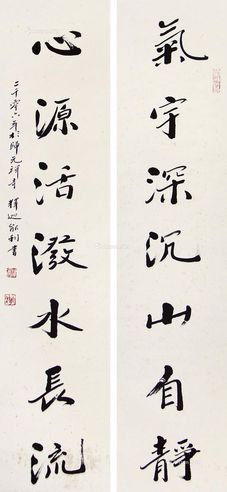 氣宇深沉山自靜
心源活潑水長流
二千零六年於歸元禪寺 釋 能利書